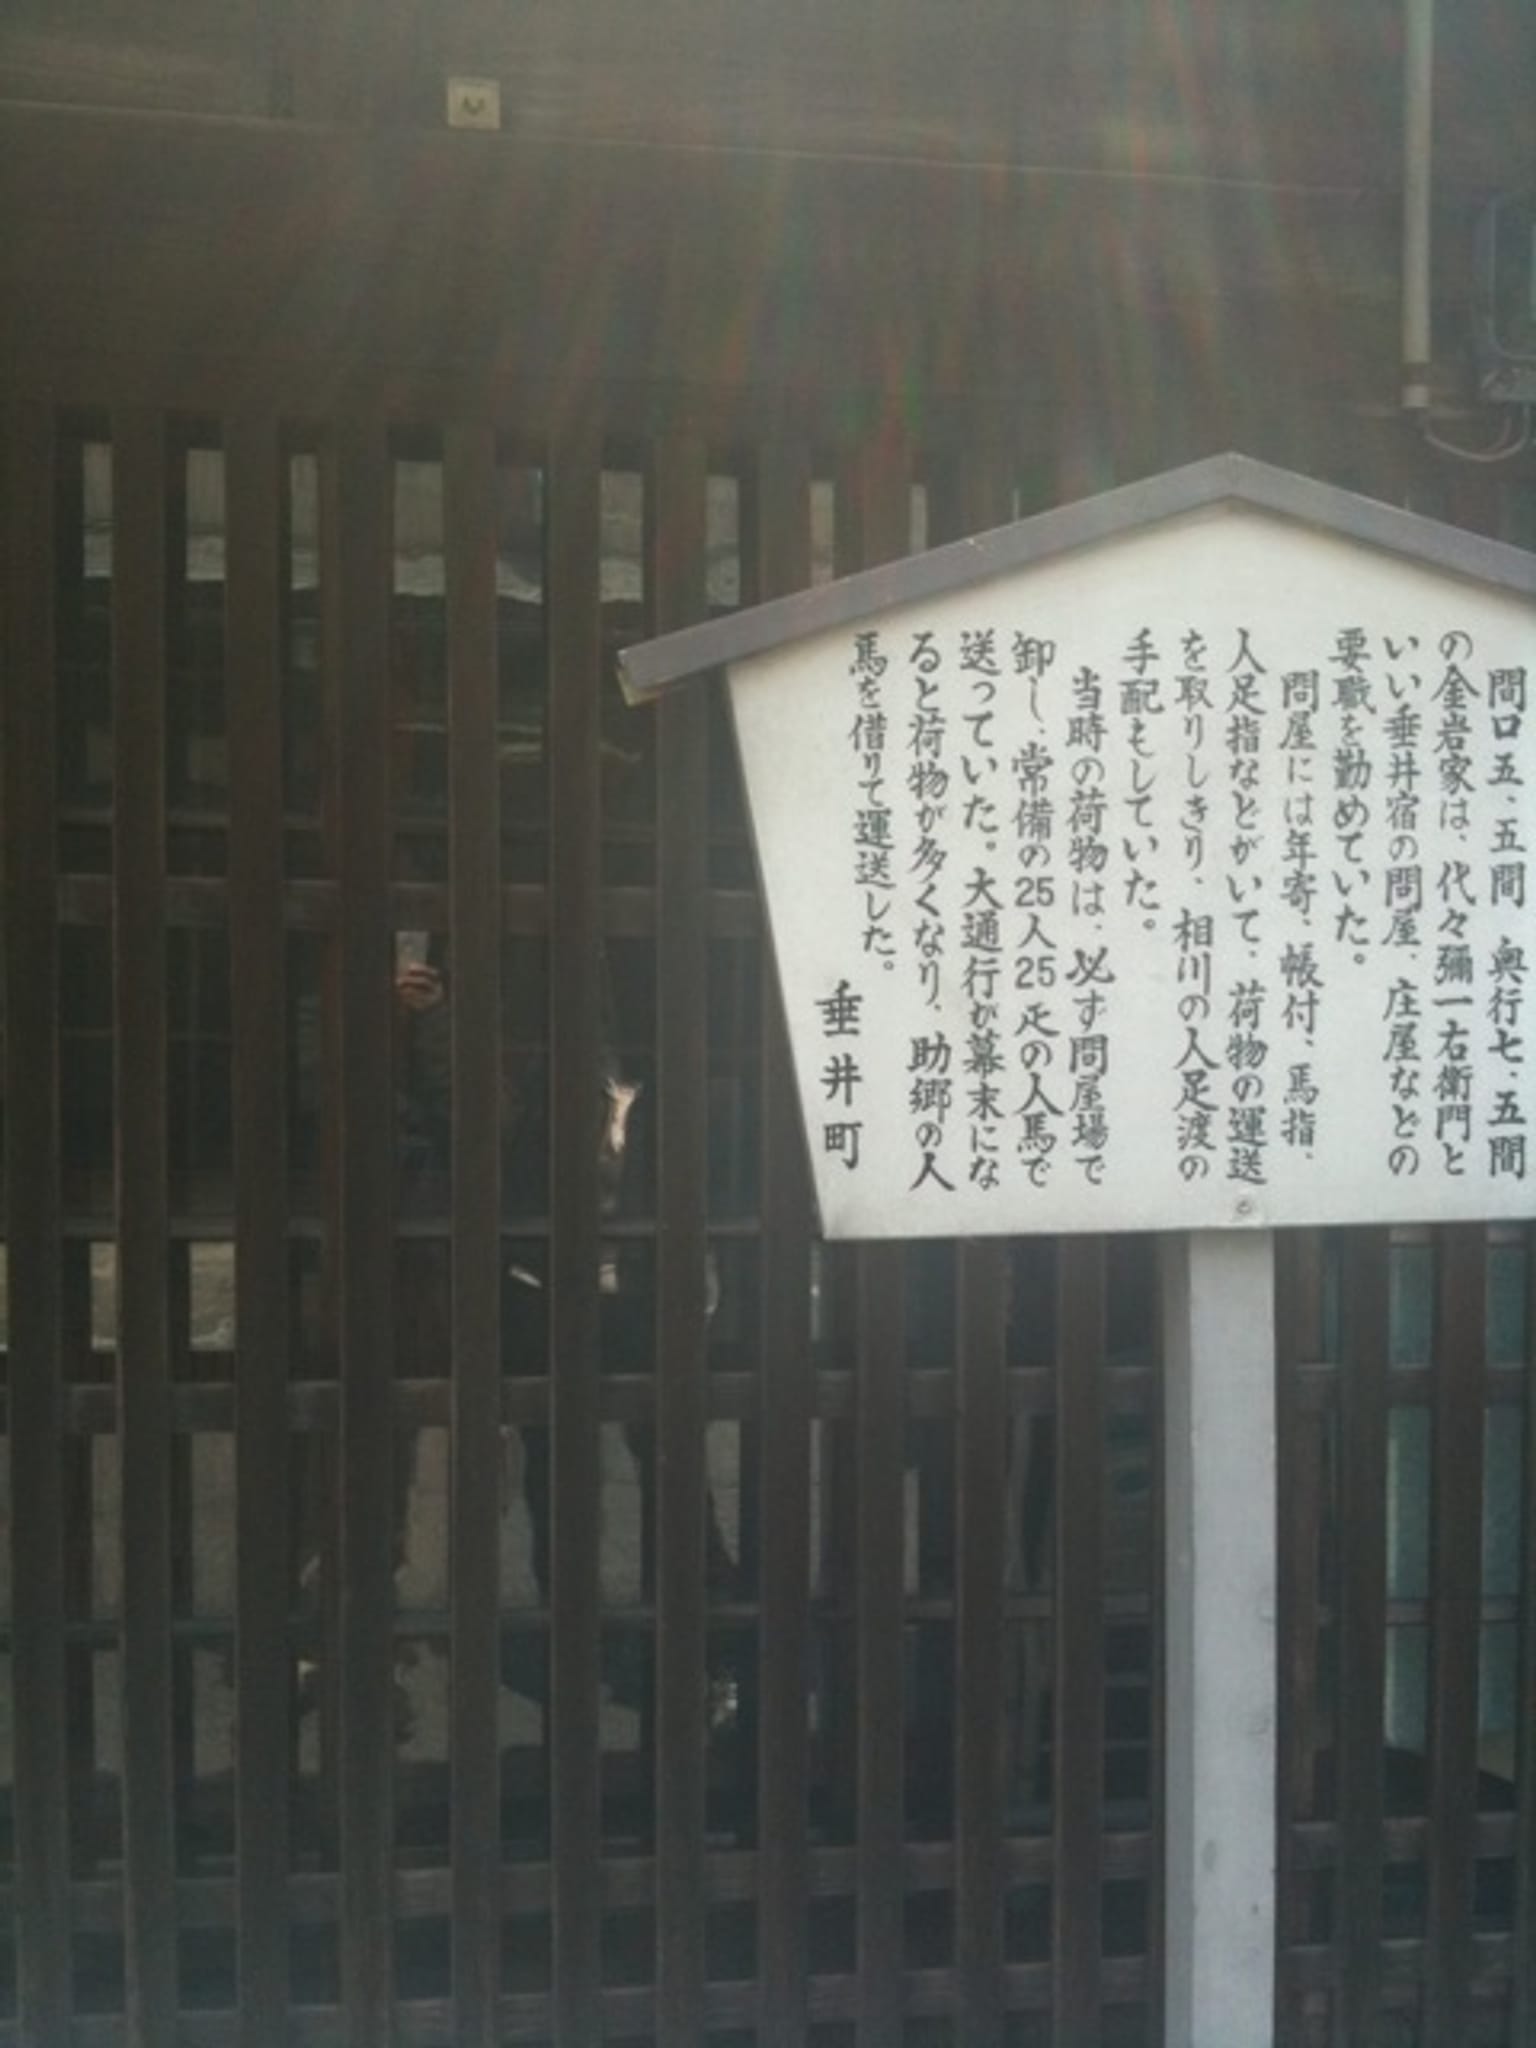 間口五.五間 奥行七.五間
の金岩家は、代々彌一右衛門と
いい垂井宿の問屋、庄屋などの
要職を勤めていた。
問屋には年寄、帳付、馬指、
人足指などがいて、荷物の運送
を取りしきり、相川の人足渡の
手配もしていた。
当時の荷物は、必ず問屋場で
卸し、常備の25人25疋の人馬で
送っていた。大通行が幕末にな
ると荷物が多くなり、助郷の人
馬を借りて運送した。
垂井町